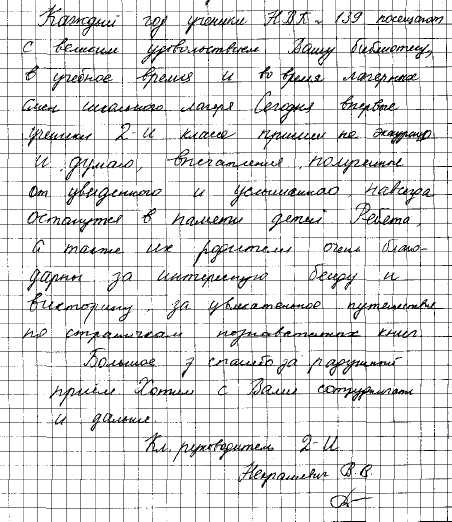 Каждый год ученики НВК № 139 посещают
с великим удовольствием Вашу библиотеку,
в учебное время и во время лагерных
смен школьного лагеря Сегодня впервые
ученики 2-И класса пришли на экскурсию
и думаю, впечатления, полученные
от увиденного и услышанного, навсегда
останутся в памяти детей Ребята,
а также их родители очень благо-
дарны за интересную беседу и
викторину, за увлекательное путешествие
по страничкам познавательных книг
Большое спасибо за радушный
прием Хотим с Вами сотрудничать
и дальше
Кл. руководитель 2-И
Некрашевич В.В.